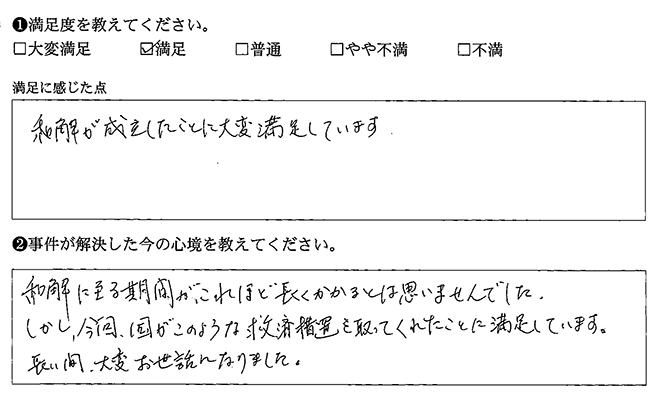 ❶満足度を教えてください。
□大変満足 ☑満足 □普通 □やや不満 □不満
満足に感じた点
和解が成立したことに大変満足しています.
❷事件が解決した今の心境を教えてください。
和解に至る期間が、これほど長くかかるとは思いませんでした.
しかし、今回、国がこのような救済措置を取ってくれたことに満足しています。
長い間、大変お世話になりました。